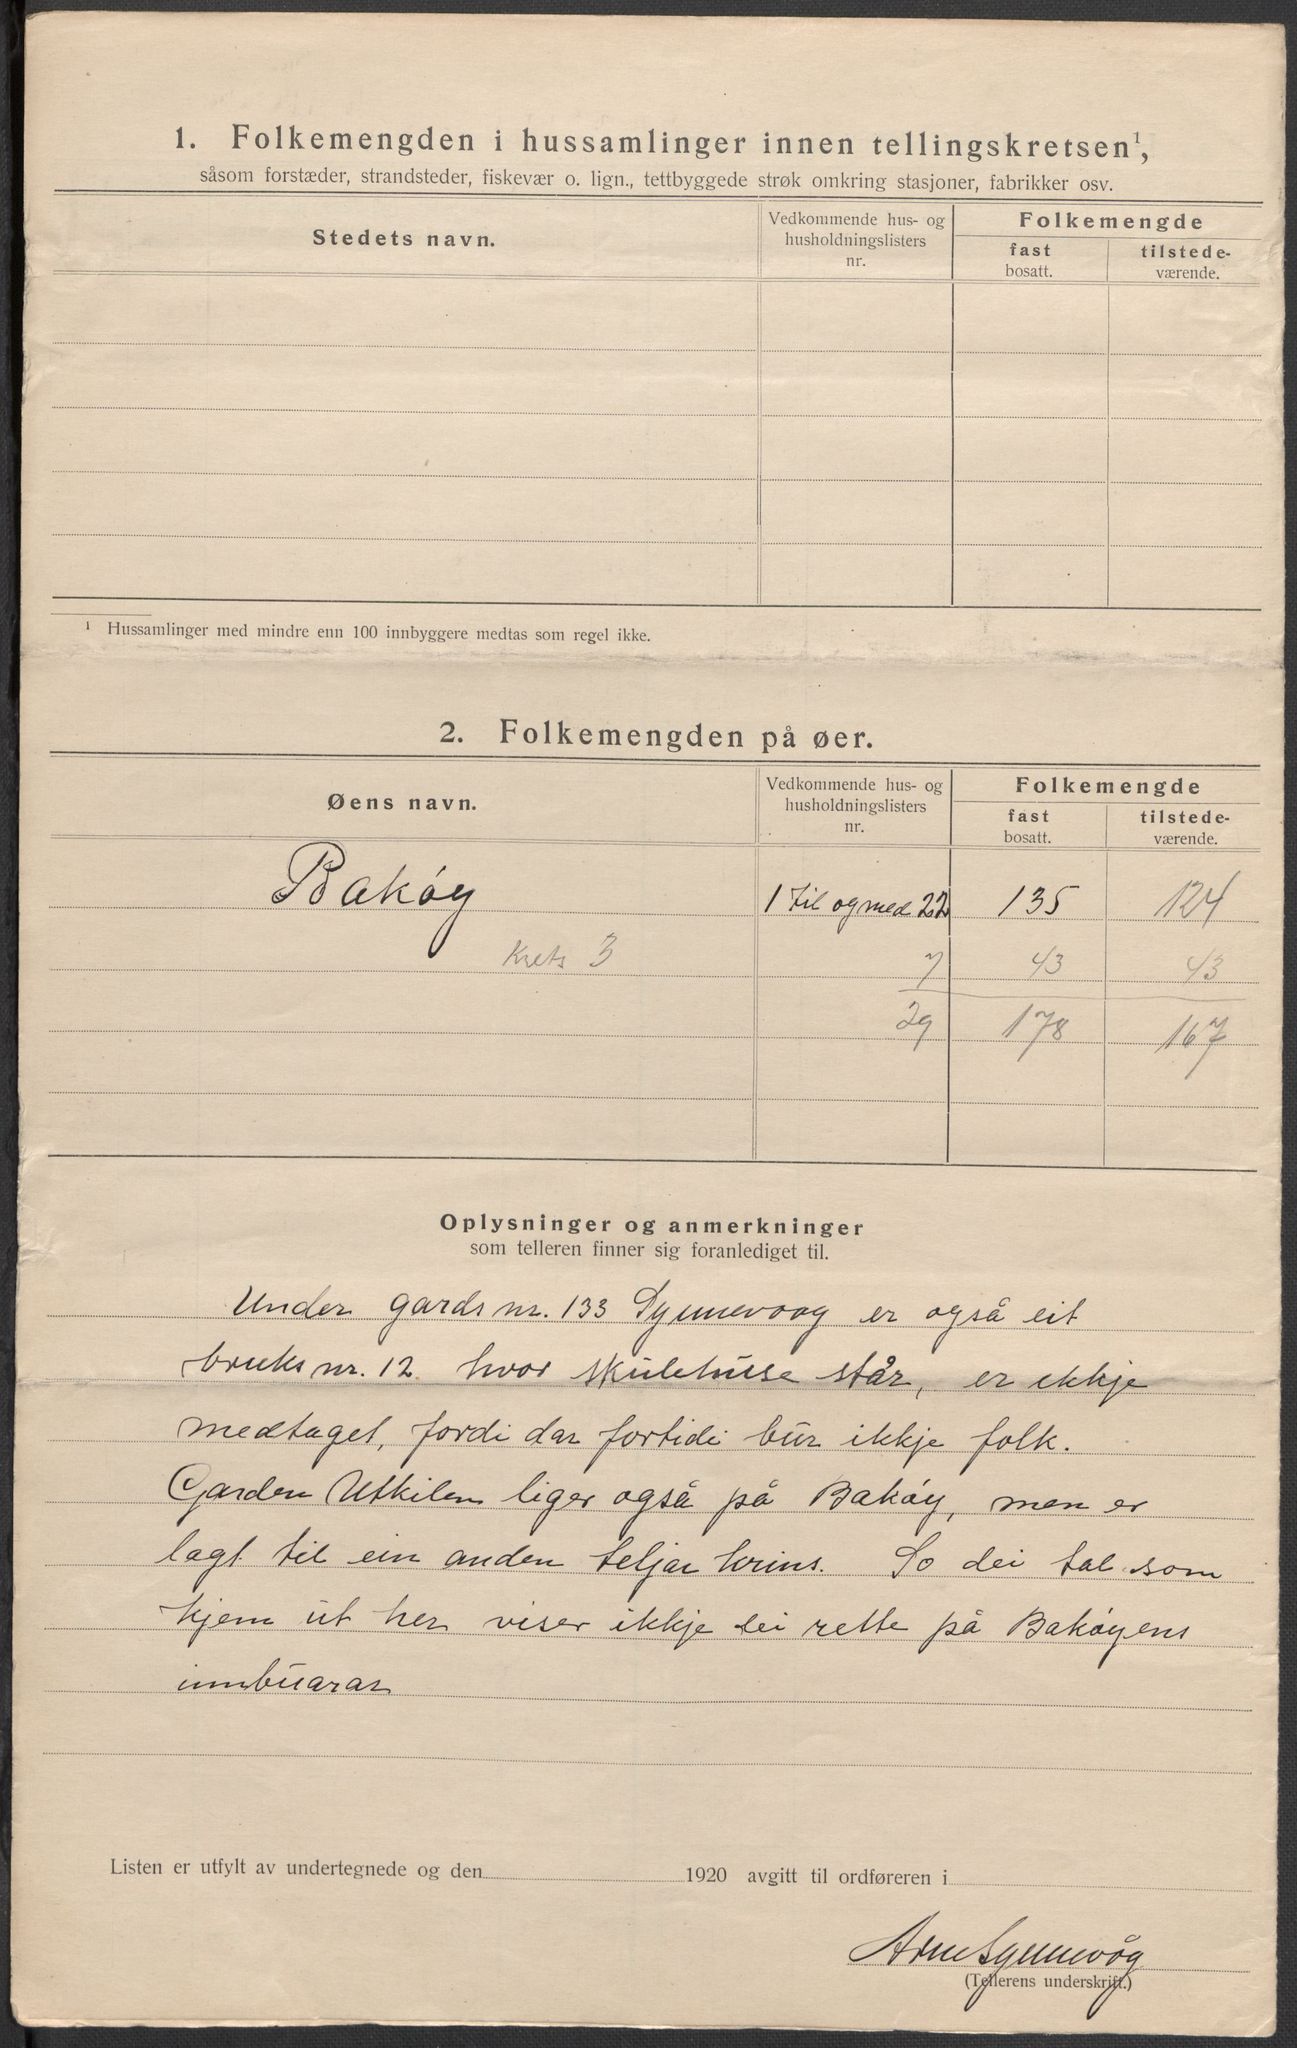 1. Folkemengden i hussamlinger innen tellingskretsen¹,
såsom forstæder, strandsteder, fiskevær o. lign., tettbyggede strøk omkring stasjoner, fabrikker osv.
Stedets navn.
Vedkommende hus- og
husholdningslisters
nr.
Folkemengde
fast
bosatt.
tilstede-
værende.
¹ Hussamlinger med mindre enn 100 innbyggere medtas som regel ikke.
2. Folkemengden på øer.
Øens navn.
Vedkommende hus- og
husholdningslisters
nr.
Folkemengde
fast
bosatt.
tilstede-
værende.
Bakóy 1 til og med 22 135 124
Krets 3 7 43 43
29 178 167
Oplysninger og anmerkninger
som telleren finner sig foranlediget til.
Under gards nr. 133 Synnevaag er også eit
bruks nr. 12 hvor skulehuse står, er ikkje
medtaget, fordi dar fortidi bur ikkje folk.
Garden Utkilen liger også på Bakóy, men er
lagt til ein anden teljar krins. So dei tal som
kjem ut her viser ikkje dei rette på Bakóyens
innbuarar
Listen er utfylt av undertegnede og den 1920 avgitt til ordføreren i
Arne Synnevåg
(Tellerens underskrift.)